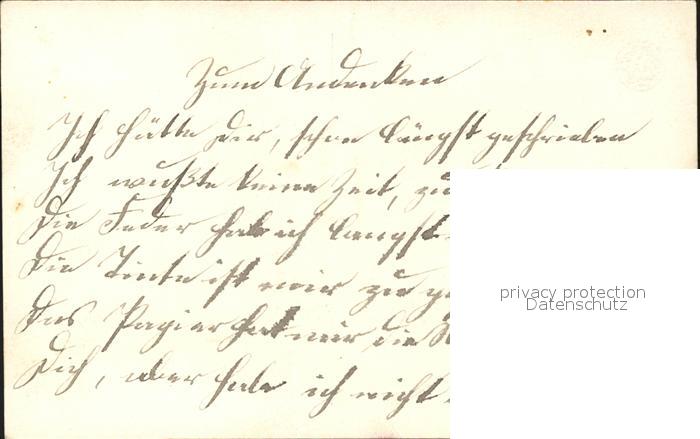 Zum Andenken
Ich hätte Dir, schon längst geschrieben
Ich wußte keine Zeit, zu
Die Feder hab ich längst
Die Tinte ist mir zu
Das Papier hat mir die
Dich, aber habe ich nicht
privacy protection
Datenschutz